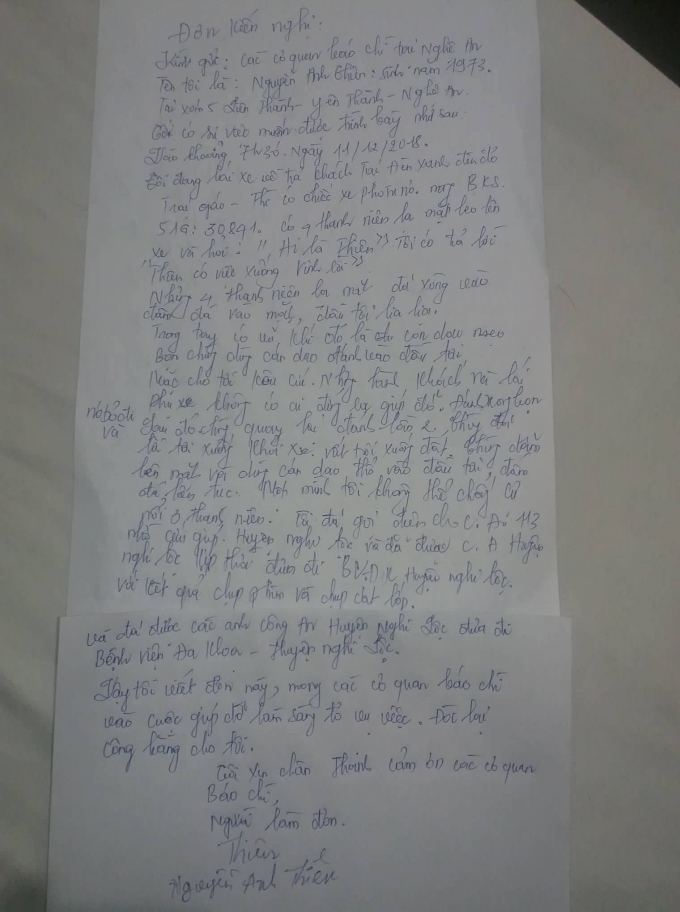 Đơn Kiến nghị.
Kính gửi: các cơ quan báo chí tại Nghệ An
Tên tôi là: Nguyễn Anh Thiên: sinh năm 1973.
Tại xóm 5 Thành - Yên Thành - Nghệ An.
Tôi có sự việc muốn được trình bày như sau:
Vào khoảng, 7h30. Ngày 11/12/2018.
Tôi đang lái xe về trả khách Tại đèn xanh đèn đỏ
Trại gáo - Thì có chiếc xe nó. mang BKS.
51G: 30891. có 4 thanh niên lạ mặt leo lên
xe và hỏi: "Ai là Thiên" Tôi có trả lời
"Thiên có việc xuống Vinh rồi"
Những 4 thanh niên lạ mặt đã xông vào
đấm đá vào mặt, đầu tôi lia lịa.
Trong tay có vũ khí đó là con dao
Bọn chúng dùng cán dao đánh vào đầu tôi
Mặc cho tôi kêu cứu. Những hành khách và lái
phụ xe không có ai đứng lại giúp đỡ. Đánh xong bọn
nó bỏ đi và sau đó chúng quay lại đánh lần 2, chúng
tôi xuống khỏi xe. vứt tôi xuống đất, chúng đấm
lên mặt và dùng cán dao vào đầu tôi, đấm
đá liên tục. Một mình tôi không thể chống cự
nổi 3, thanh niên. Tôi đã gọi điện cho C. An 113
nhờ giúp. Huyện nghi lộc và đã được C. A Huyện
nghi lộc kịp thời đưa đi BV. ĐK Huyện nghi lộc.
với kết quả chụp phim và chụp cắt lớp.
và đã được các anh công An Huyện Nghi Lộc đưa đi
Bệnh viện Đa Khoa - Huyện nghi Lộc.
Vậy tôi viết đơn này, mong các cơ quan báo chí
vào cuộc giúp đỡ làm sáng tỏ vụ việc. Đòi lại
công bằng cho tôi.
Tôi xin chân Thành cảm ơn các cơ quan
Báo chí,
Người làm đơn.
Thiên
Nguyễn Anh Thiên